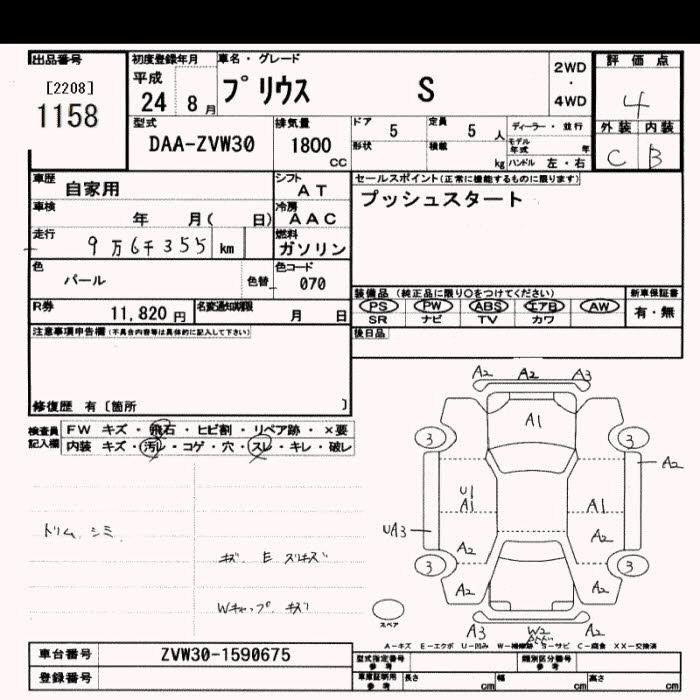 出品番号 初度登録年月 車名・グレード 評価点
[2208] 平成 プリウス S 2WD ・ 4WD 4
1158 24 8 月
外装 内装
C B
型式 排気量 ドア 5 定員 5 人 ディーラー・並行
DAA-ZVW30 1800 cc 形状 積載 kg モデル年式 年
ハンドル 左・右
車歴 自家用 シフト AT セールスポイント(正常に機能するものに限ります)
車検 年 月( 日) 冷房 AAC プッシュスタート
走行 9万6千355 km 燃料 ガソリン
色 パール 色替 色コード 070
装備品 (純正品に限り○をつけてください) 新車保証書
PS PW ABS エアB AW 有・無
SR ナビ TV カワ
R券 11,820 円 名変通知期限 月 日
後日品
注意事項申告欄(不具合内容等は具体的に記入して下さい)
修復歴 有 [箇所 ]
検査員記入欄
FW キズ・飛石・ヒビ割・リペア跡・×要
内装 キズ・汚レ・コゲ・穴・スレ・キレ・破レ
トリム シミ
キズ E スリキズ
Wキャップ キズ
A2 A2 A3
A1
3 3
A2
U1
A1 A1
UA3
A2 A2
3 3
A2 A2
スペア
A3 W2 A2
A-キズ E-エクボ U-凹み W-補修跡 S-サビ C-腐食 XX-交換済
車台番号 ZVW30-1590675
登録番号
型式指定番号 参考 類別区分番号 参考
車庫証明用 参考 長さ cm 幅 cm 高さ cm